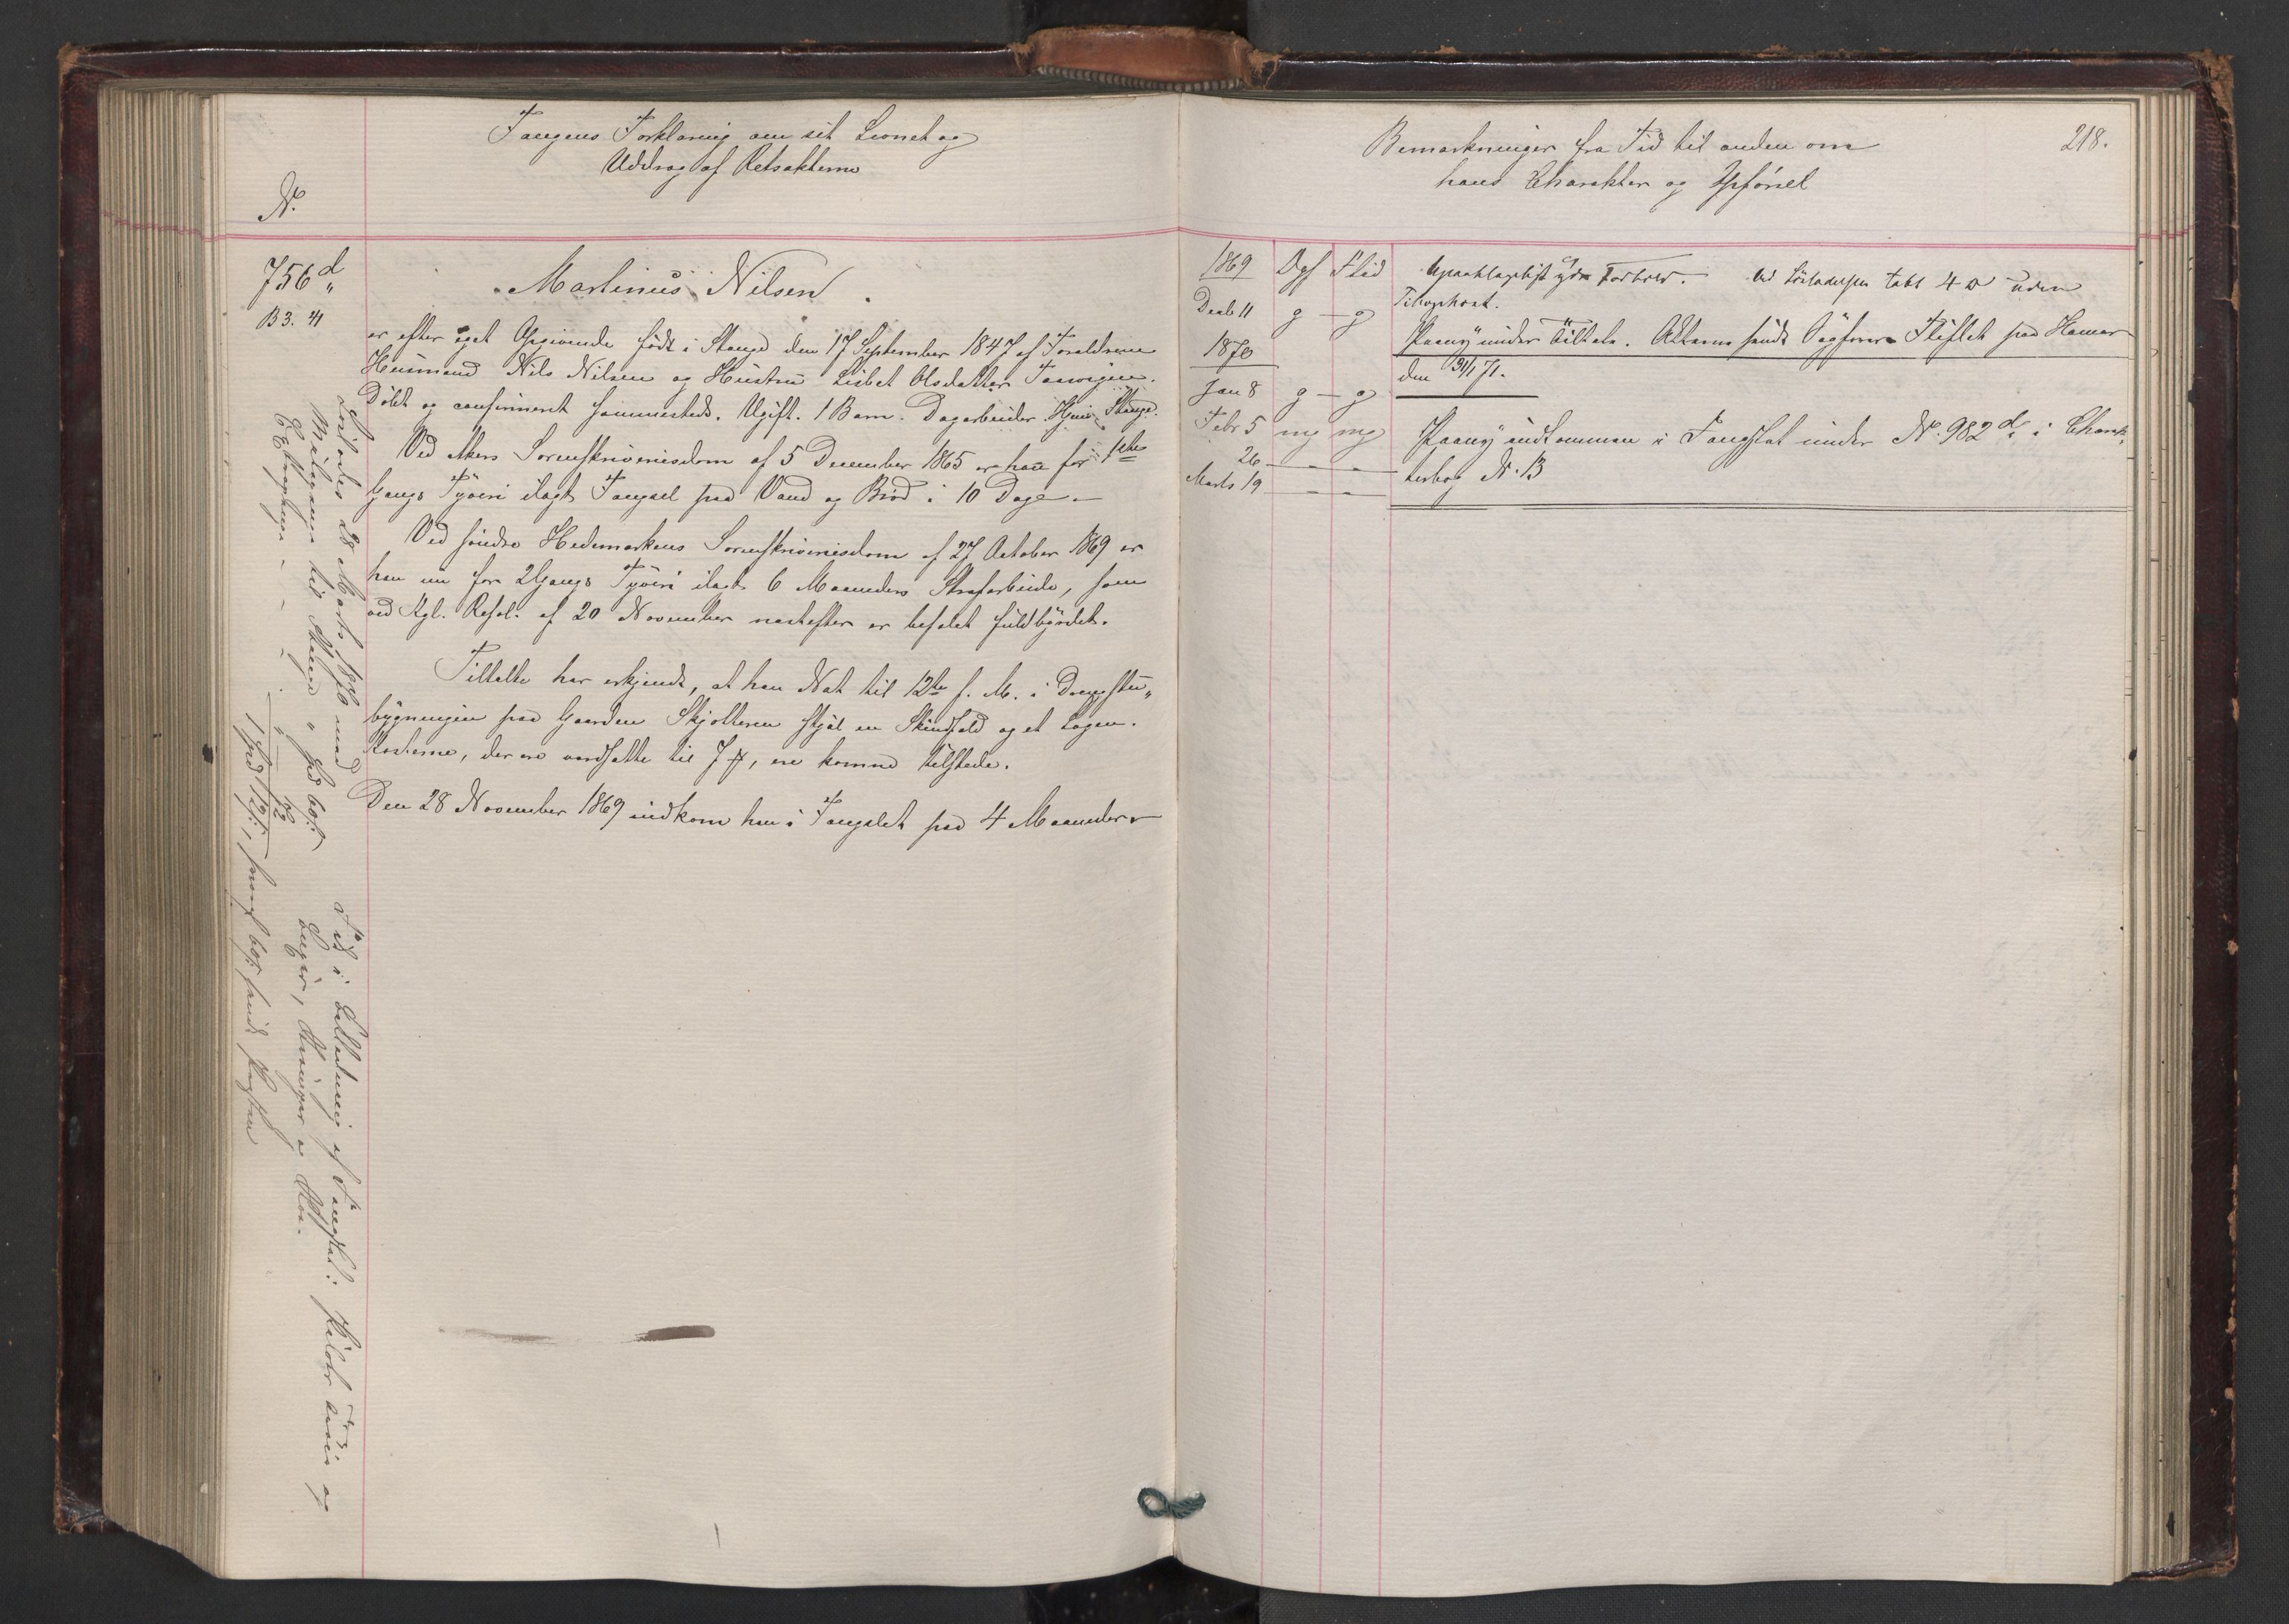 Fangens Forklaring om sit Levnet og
Uddrag af Retsakterne
No.
756d
B 3. 41
Martinus Nilsen.
er efter eget Opgivende født i Stange den 17 September 1847 af Forældrene
Husmand Nils Nilsen og Hustru Lisbet Olsdatter
Døbt og confirmeret sammesteds. Ugift. 1 Barn. Dagarbeider. Hjem: Stange.
Ved Akers Sorenskriverisdom af 5 December 1865 er han for 1ste
Gangs Tyveri ilagt Fængsel paa Vand og Brød i 10 Dage.
Ved søndre Hedemarkens Sorenskriverisdom af 27 October 1869 er
han nu for 2 Gangs Tyveri ilagt 6 Maaneders Strafarbeide, som
ved Kgl. Resol. af 20 November næstefter er befalet fuldbyrdet.
Tiltalte har erkjendt, at han Nat til 12te s. M. i Drengestu„
bygningen paa Gaarden Skjolleren stjal en Skindfeld og et Lagen.
Kosterne, der ere værdsatte til 7 ℔, ere komne tilstede.
Den 28 November 1869 indkom han i Fængslet paa 4 Maaneder
Løslades 28 Marts 1870 med
til Stange
1 Spd 12 ß, hvoraf 60 ß sendt
Tid i Beklædning af Fængslet:
Bemærkninger fra Tid til anden om
hans Charakter og Opførsel
218.
1869 Opf Flid
Decb 11 g – g
1870
Jan 8 g – g
Febr 5 mg mg
26 — —
Marts 19 — —
Upaaklageligt Forhold. Ved Løsladelsen tabt 4 ℔ uden
Paany under Tiltale. Akterne sendt Sagfører Fliflet paa Hamar
den 31/1 71.
Paany indkommen i Fængslet under No. 982d i Charak„
terbog No. 13